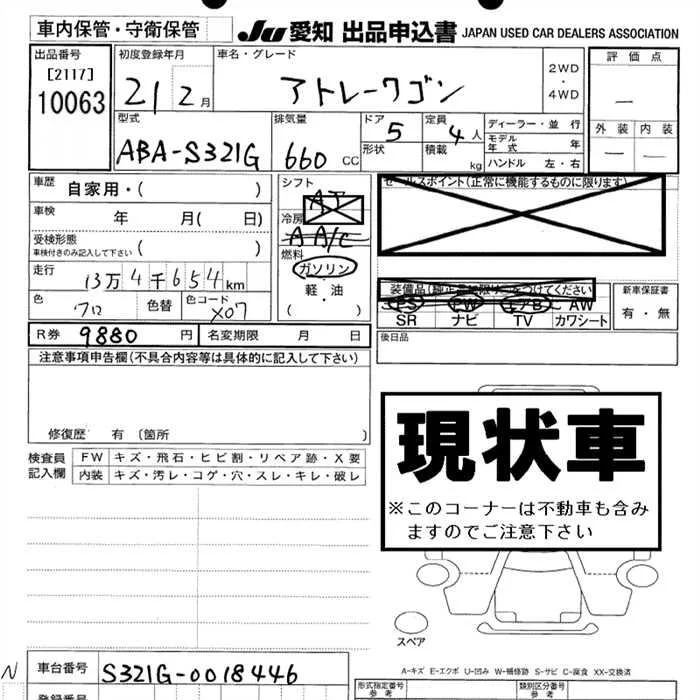 車内保管・守衛保管
JU 愛知 出品申込書 JAPAN USED CAR DEALERS ASSOCIATION
出品番号
[2117]
10063
初度登録年月
21 2月
車名・グレード
アトレーワゴン
2WD
・
4WD
評価点
—
外装 内装
— —
型式
ABA-S321G
排気量
660 CC
ドア
5
形状
定員
4人
積載 kg
ディーラー・並行
モデル年式 年
ハンドル 左・右
車歴 自家用・( )
車検 年 月( 日)
受検形態
車検付きのみ記入して下さい ( )
走行
13万4千654km
色
クロ
色替
色コード
X07
シフト
AT
冷房
A A/C
燃料
ガソリン
・
軽・油
( )
セールスポイント(正常に機能するものに限ります)
PS PW エアB AW
SR ナビ TV カワシート
新車保証書
有・無
後日品
R券 9880 円
名変期限 月 日
注意事項申告欄(不具合内容等は具体的に記入して下さい)
修復歴 有 (箇所 )
検査員
記入欄
FW キズ・飛石・ヒビ割・リペア跡・X要
内装 キズ・汚レ・コゲ・穴・スレ・キレ・破レ
現状車
※このコーナーは不動車も含み
ますのでご注意下さい
スペア
A-キズ E-エクボ U-凹み W-補修跡 S-サビ C-腐食 XX-交換済
N
車台番号 S321G-0018446
登録番号
形式指定番号
参考
類別区分番号
参考